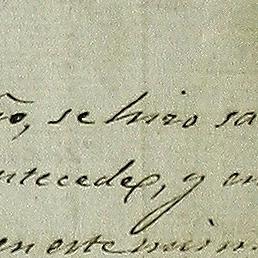 ño, se hizo sa
ntecede, y en
en este mism